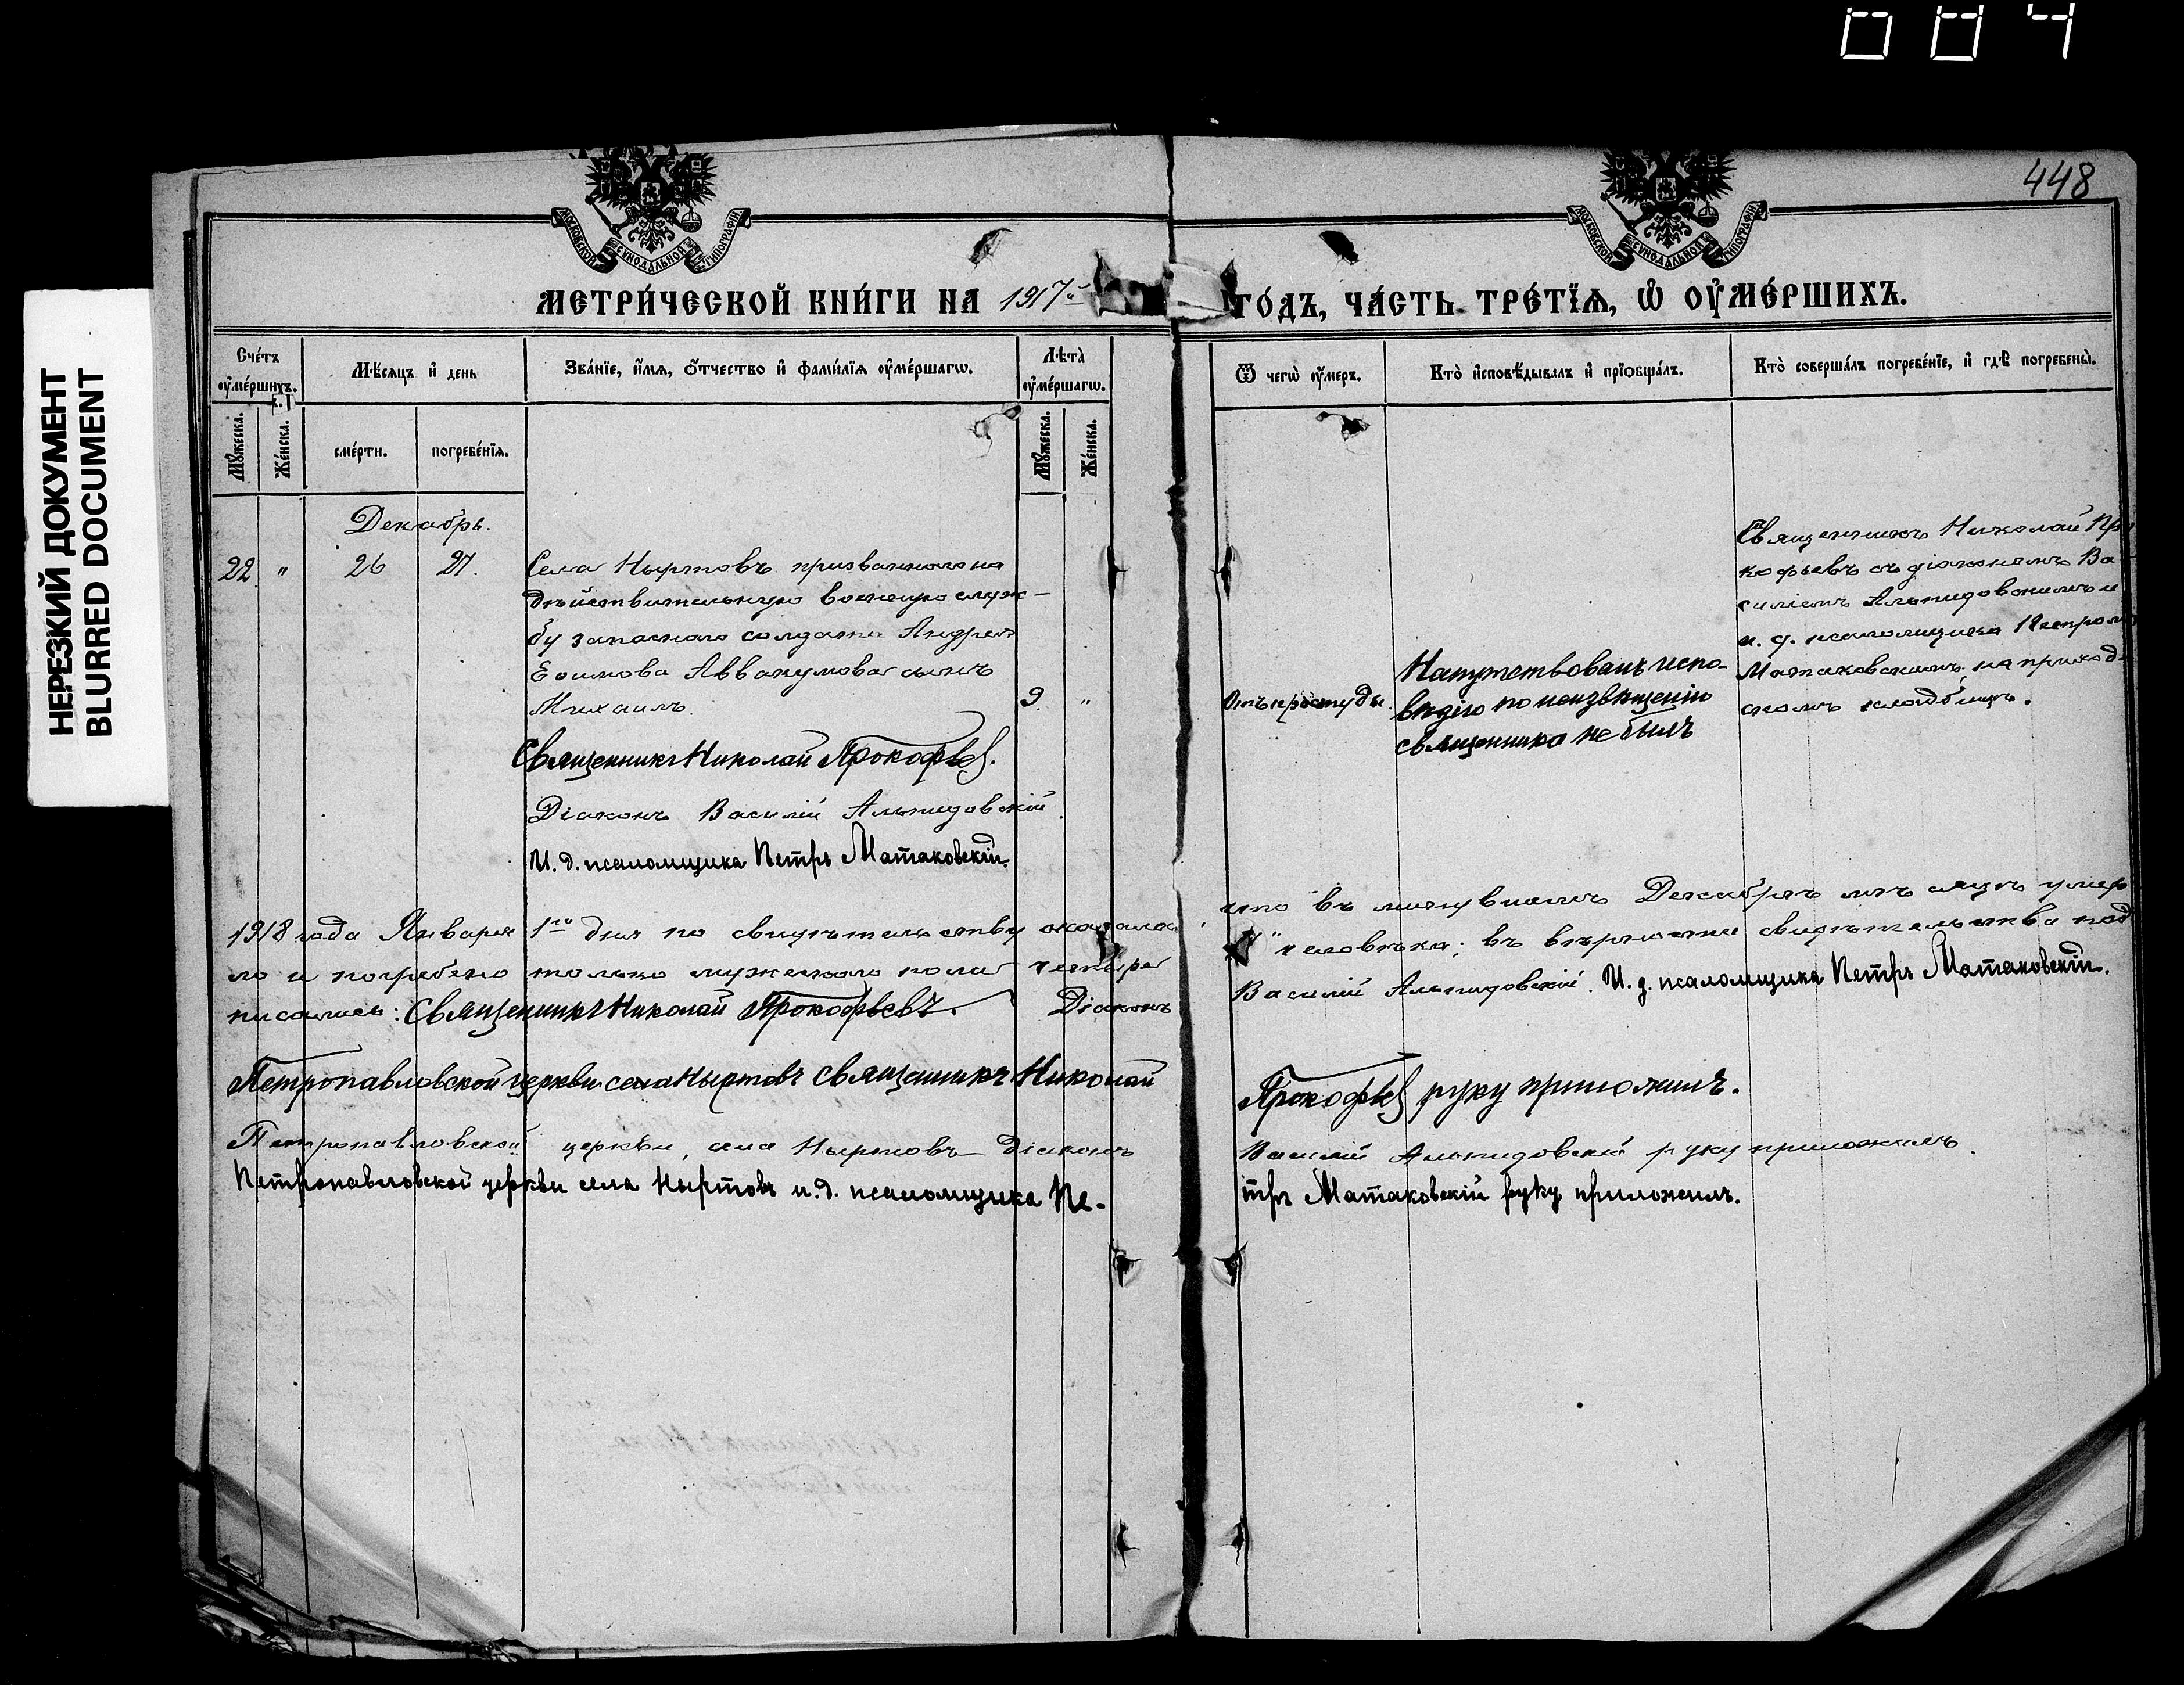 084
НЕРЕЗКИЙ ДОКУМЕНТ
BLURRED DOCUMENT
448
МОСКОВСКОЙ СѴНОДАЛЬНОЙ ТИПОГРАФІИ
МОСКОВСКОЙ СѴНОДАЛЬНОЙ ТИПОГРАФІИ
МЕТРИ́ЧЕСКОЙ КНИ́ГИ НА 1917й ГО́ДЪ, ЧА́СТЬ ТРЕ́ТЇѦ, Ѡ҆ ОУ҆МЕ́РШИХЪ.
Сче́тъ оу҆ме́ршихъ.
Мѣ́сяцъ и҆ день
Зва́нїе, и҆́мя, ѻ҆́тчество и҆ фами́лїя оу҆ме́ршагѡ.
Лѣта̀ оу҆ме́ршагѡ.
Ѿ чегѡ̀ оу҆́меръ.
Кто̀ и҆сповѣ́дывалъ и҆ прїѻбща́лъ.
Кто̀ соверша́лъ погребе́нїе, и҆ гдѣ̀ погребены̀.
Мꙋ́жеска.
Же́нска.
сме́рти.
погребе́нїя.
Мꙋ́жеска.
Же́нска.
Декабрь.
22. " 26 27. Села Ныртовъ призваннаго на
дѣйствительную военную служ-
бу запаснаго солдата Андрея
Ефимова Аввакумова сынъ
Михаилъ. 9. "
Отъ простуды.
Напутствованъ испо-
вѣдію по неизвѣщенію
священника не былъ
Священникъ Николай Про
кофьевъ съ діакономъ Ва
силіемъ Альпидовскимъ и
и. д. псаломщика Петромъ
Матаковскимъ на приход-
скомъ кладбищѣ.
Священникъ Николай Прокофьевъ.
Діаконъ Василій Альпидовскій.
И. д. псаломщика Петръ Матаковскій.
1918 года Января 1го дня по свидѣтельству оказалось, что въ минувшемъ Декабрѣ мѣсяцѣ умер
ло и погребено только мужескаго пола четыре "4" человѣка; въ вѣрности свидѣтельства под
писались: Священникъ Николай Прокофьевъ. Діаконъ Василій Альпидовскій. И. д. псаломщика Петръ Матаковскій.
Петропавловской церкви села Ныртовъ священникъ Николай Прокофьевъ руку приложилъ.
Петропавловской церкви, села Ныртовъ діаконъ Василій Альпидовскій руку приложилъ.
Петропавловской церкви села Ныртовъ и. д. псаломщика Пе-тръ Матаковскій руку приложилъ.